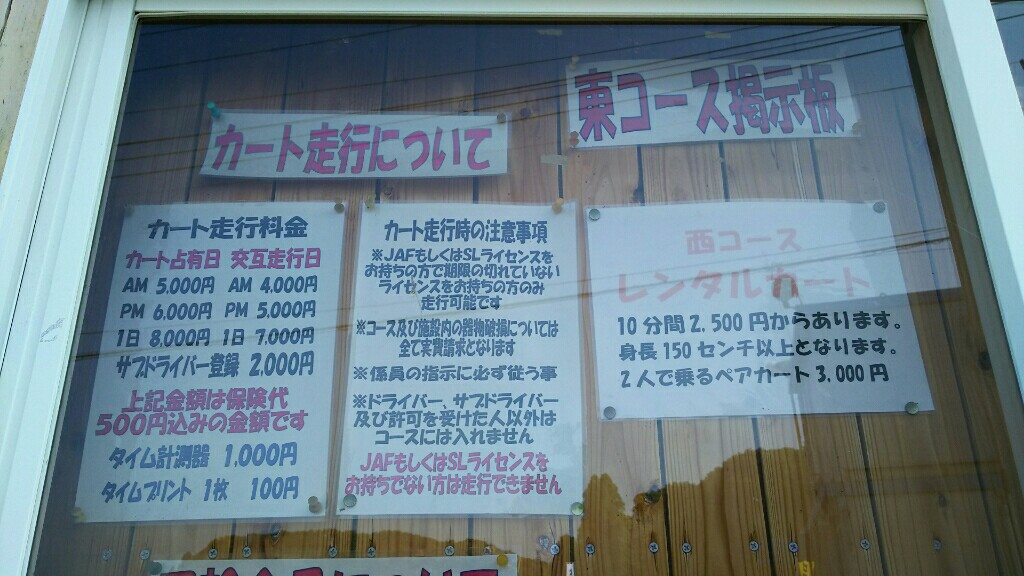 東コース掲示板
カート走行について
カート走行料金
カート占有日 交互走行日
AM 5.000円 AM 4.000円
PM 6.000円 PM 5.000円
1日 8.000円 1日 7.000円
サブドライバー登録 2.000円
上記金額は保険代
500円込みの金額です
タイム計測器 1.000円
タイムプリント 1枚 100円
カート走行時の注意事項
※JAFもしくはSLライセンスを
お持ちの方で期限の切れていない
ライセンスをお持ちの方のみ
走行可能です
※コース及び施設内の器物破損については
全て実費請求となります
※係員の指示に必ず従う事
※ドライバー、サブドライバー
及び許可を受けた人以外は
コースには入れません
JAFもしくはSLライセンスを
お持ちでない方は走行できません
西コース
レンタルカート
10分間2.500円からあります。
身長150センチ以上となります。
2人で乗るペアカート3.000円